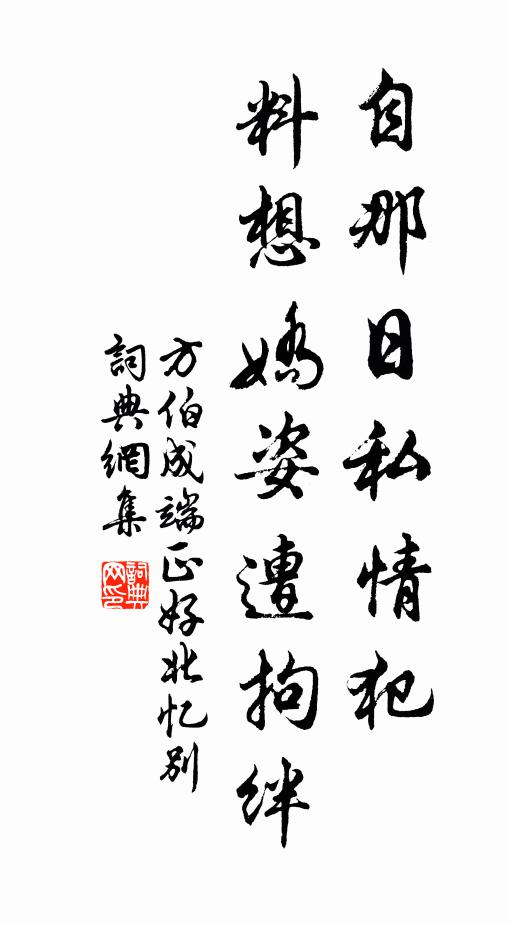 自那日私情犯
料想嬌姿遭拘絆
方伯成端正好北忆别
詞典網集
詞典网印